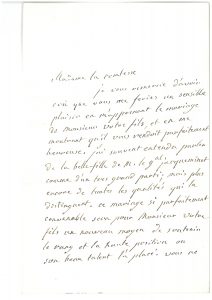 Madame la comtesse
je vous remercie d'avoir
cru que vous me feriez un sensible
plaisir en m'apprenant le mariage
de monsieur votre fils, et en me
montrant qu'il vous rendait parfaitement
heureuse. j'ai souvent entendu parler
de la belle-fille de M. le gal. Jacqueminot
comme d'un très grand parti, mais plus
encore de toutes les qualités qui la
distinguent. ce mariage si parfaitement
convenable sera pour Monsieur votre
fils un nouveau moyen de soutenir
le rang et la haute position où
son beau talent l'a placé. vous ne